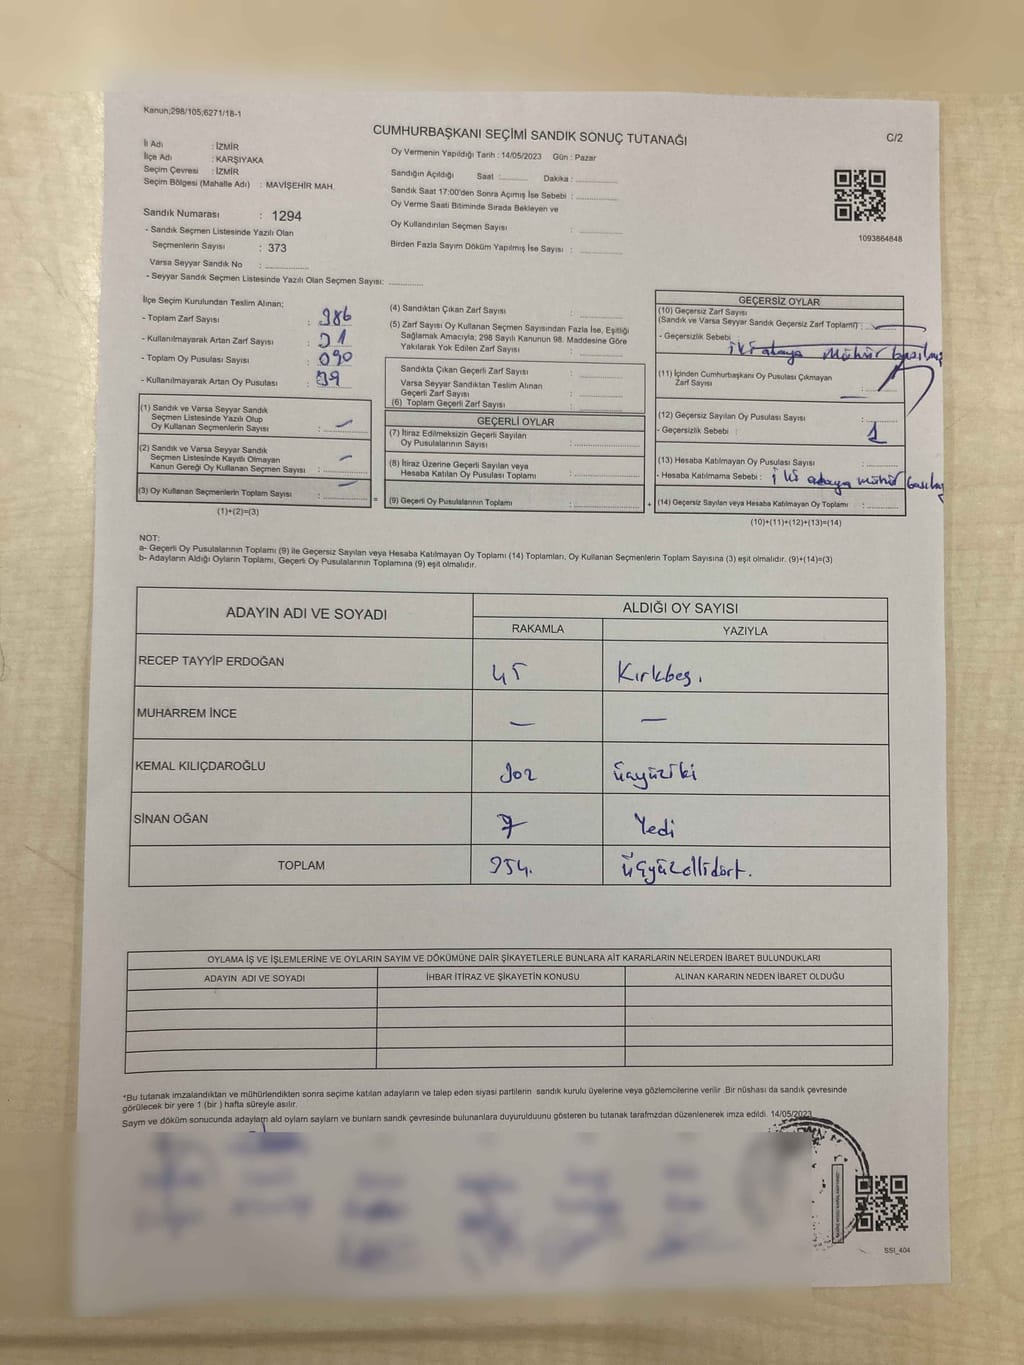 Kanun;298/105;6271/18-1
CUMHURBAŞKANI SEÇİMİ SANDIK SONUÇ TUTANAĞI
C/2
İl Adı : İZMİR
İlçe Adı : KARŞIYAKA
Seçim Çevresi : İZMİR
Seçim Bölgesi (Mahalle Adı) : MAVİŞEHİR MAH.
Sandık Numarası : 1294
- Sandık Seçmen Listesinde Yazılı Olan
Seçmenlerin Sayısı : 373
Varsa Seyyar Sandık No :
- Seyyar Sandık Seçmen Listesinde Yazılı Olan Seçmen Sayısı:
Oy Vermenin Yapıldığı Tarih : 14/05/2023 Gün : Pazar
Sandığın Açıldığı Saat : Dakika :
Sandık Saat 17:00'den Sonra Açımış İse Sebebi :
Oy Verme Saati Bitiminde Sırada Bekleyen ve
Oy Kullandırılan Seçmen Sayısı :
Birden Fazla Sayım Döküm Yapılmış İse Sayısı :
1093864848
İlçe Seçim Kurulundan Teslim Alınan;
- Toplam Zarf Sayısı : 386
- Kullanılmayarak Artan Zarf Sayısı : 31
- Toplam Oy Pusulası Sayısı :
- Kullanılmayarak Artan Oy Pusulası :
(1) Sandık ve Varsa Seyyar Sandık
Seçmen Listesinde Yazılı Olup
Oy Kullanan Seçmenlerin Sayısı : —
(2) Sandık ve Varsa Seyyar Sandık
Seçmen Listesinde Kayıtlı Olmayan
Kanun Gereği Oy Kullanan Seçmen Sayısı : —
(3) Oy Kullanan Seçmenlerin Toplam Sayısı : —
(1)+(2)=(3)
(4) Sandıktan Çıkan Zarf Sayısı :
(5) Zarf Sayısı Oy Kullanan Seçmen Sayısından Fazla İse, Eşitliği
Sağlamak Amacıyla; 298 Sayılı Kanunun 98. Maddesine Göre
Yakılarak Yok Edilen Zarf Sayısı :
Sandıkta Çıkan Geçerli Zarf Sayısı :
Varsa Seyyar Sandıktan Teslim Alınan
Geçerli Zarf Sayısı :
(6) Toplam Geçerli Zarf Sayısı :
GEÇERLİ OYLAR
(7) İtiraz Edilmeksizin Geçerli Sayılan
Oy Pusulalarının Sayısı :
(8) İtiraz Üzerine Geçerli Sayılan veya
Hesaba Katılan Oy Pusulası Toplamı :
= (9) Geçerli Oy Pusulalarının Toplamı :
GEÇERSİZ OYLAR
(10) Geçersiz Zarf Sayısı
(Sandık ve Varsa Seyyar Sandık Geçersiz Zarf Toplamı) :
- Geçersizlik Sebebi : iki adaya mühür
(11) İçinden Cumhurbaşkanı Oy Pusulası Çıkmayan
Zarf Sayısı : —
(12) Geçersiz Sayılan Oy Pusulası Sayısı
- Geçersizlik Sebebi : 1
(13) Hesaba Katılmayan Oy Pusulası Sayısı :
- Hesaba Katılmama Sebebi : iki adaya mühür
+ (14) Geçersiz Sayılan veya Hesaba Katılmayan Oy Toplamı :
(10)+(11)+(12)+(13)=(14)
NOT:
a- Geçerli Oy Pusulalarının Toplamı (9) ile Geçersiz Sayılan veya Hesaba Katılmayan Oy Toplamı (14) Toplamları, Oy Kullanan Seçmenlerin Toplam Sayısına (3) eşit olmalıdır. (9)+(14)=(3)
b- Adayların Aldığı Oyların Toplamı, Geçerli Oy Pusulalarının Toplamına (9) eşit olmalıdır.
ADAYIN ADI VE SOYADI ALDIĞI OY SAYISI
RAKAMLA YAZIYLA
RECEP TAYYİP ERDOĞAN 45 Kırkbeş.
MUHARREM İNCE — —
KEMAL KILIÇDAROĞLU 302 üçyüziki
SİNAN OĞAN 7 Yedi
TOPLAM 354. üçyüzellidört.
OYLAMA İŞ VE İŞLEMLERİNE VE OYLARIN SAYIM VE DÖKÜMÜNE DAİR ŞİKAYETLERLE BUNLARA AİT KARARLARIN NELERDEN İBARET BULUNDUKLARI
ADAYIN ADI VE SOYADI İHBAR İTİRAZ VE ŞİKAYETİN KONUSU ALINAN KARARIN NEDEN İBARET OLDUĞU
*Bu tutanak imzalandıktan ve mühürlendikten sonra seçime katılan adayların ve talep eden siyasi partilerin sandık kurulu üyelerine veya gözlemcilerine verilir .Bir nüshası da sandık çevresinde
görülecek bir yere 1 (bir ) hafta süreyle asılır.
Saym ve döküm sonucunda adaylarn ald oylarn saylarn ve bunlarn sandk çevresinde bulunanlara duyurulduunu gösteren bu tutanak tarafmzdan düzenlenerek imza edildi. 14/05/2023
SSI_404